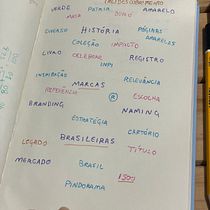 DESCOBRIMENTO
VERDE PATRIA AMARELO
MAPA DONO
DIVERSO HISTÓRIA PÁGINAS AMARELAS
COLEÇÃO IMPACTO
LIVRO CELEBRAR REGISTRO
INPI
INSPIRAÇÃO RELEVÂNCIA
MARCAS
REFERÊNCIA ® ESCOLHA
BRANDING NAMING
ESTRATÉGIA
CARTÓRIO
LEGADO BRASILEIRAS
TÍTULO
MERCADO BRASIL
1500
PINDORAMA